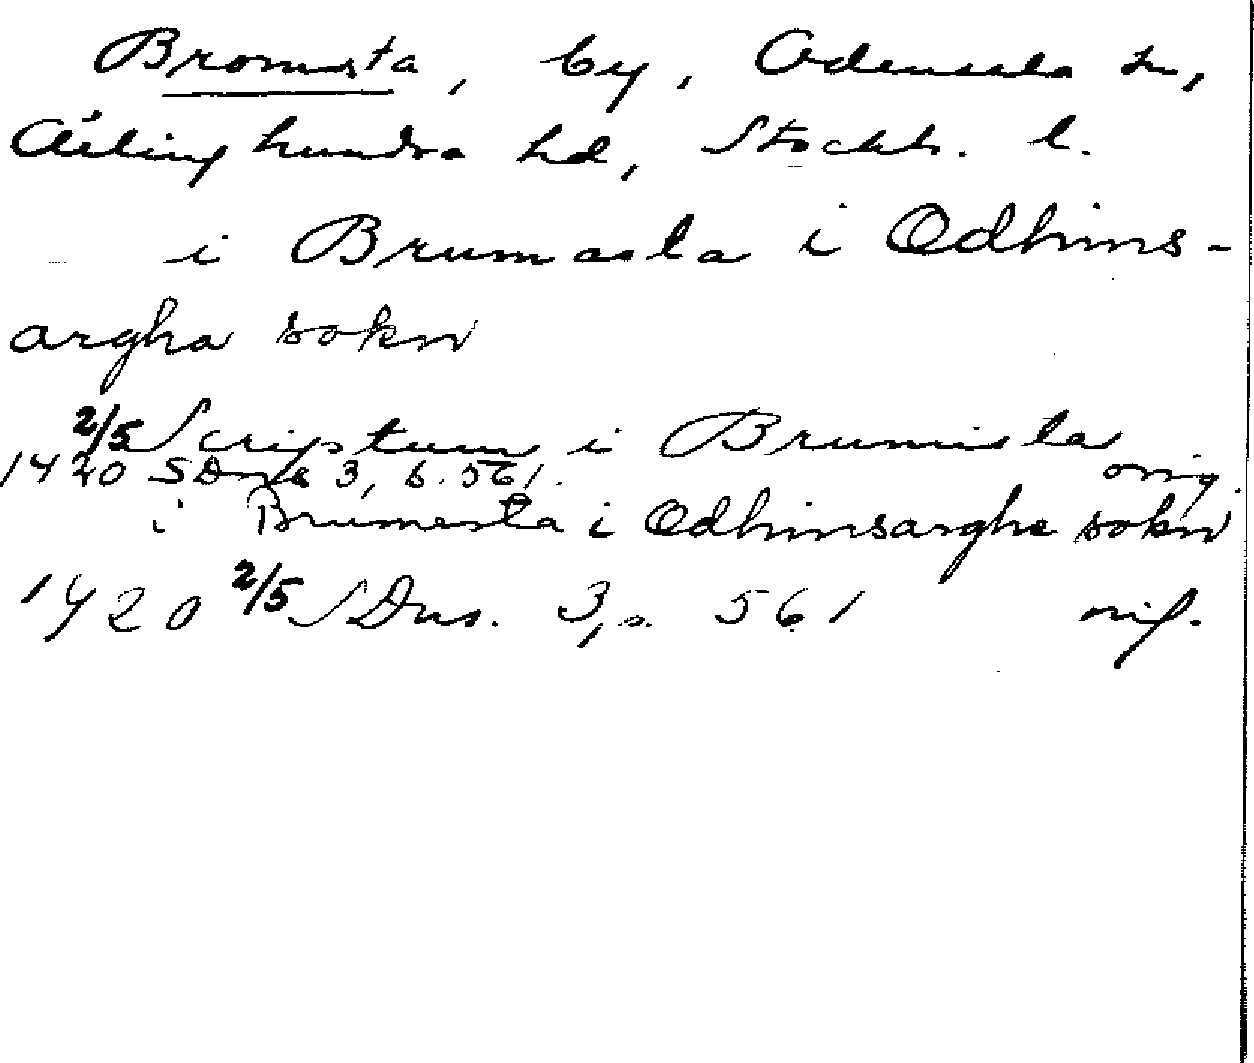 Bromsta, by, Odensala sn,
Ärlinghundra hd, Stockh. l.
i Brumasta i Odhins-
argha sokn
2/5 Scriptum i Brumista
1420 SDns 3, s. 561. orig.
i Brumesta i Odhinsargha sokn
1420 2/5 SDns. 3, s. 561 orig.